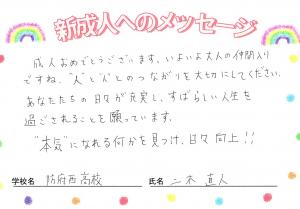 新成人へのメッセージ
成人おめでとうございます。いよいよ大人の仲間入り
ですね。"人"と"人"とのつながりを大切にしてください。
あなたたちの日々が充実し、すばらしい人生を
過ごされることを願っています。
"本気"になれる何かを見つけ、日々向上!!
学校名 防府西高校 氏名 二木 直人